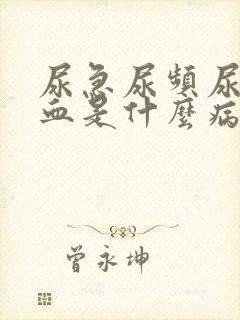 尿急尿頻尿
血是什麼病
曾永坤